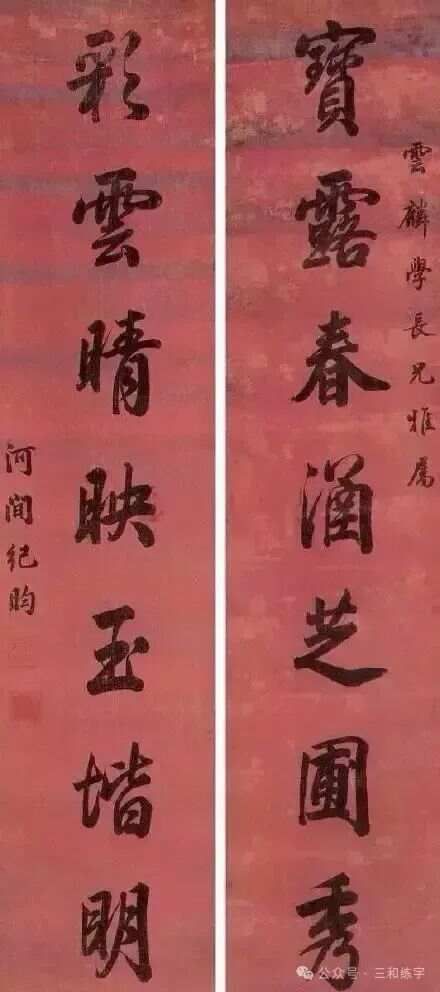 雲麟學長兄雅屬
寶露春涵芝圃秀
彩雲晴映玉堦明
河間紀昀
公众号 · 三和练字